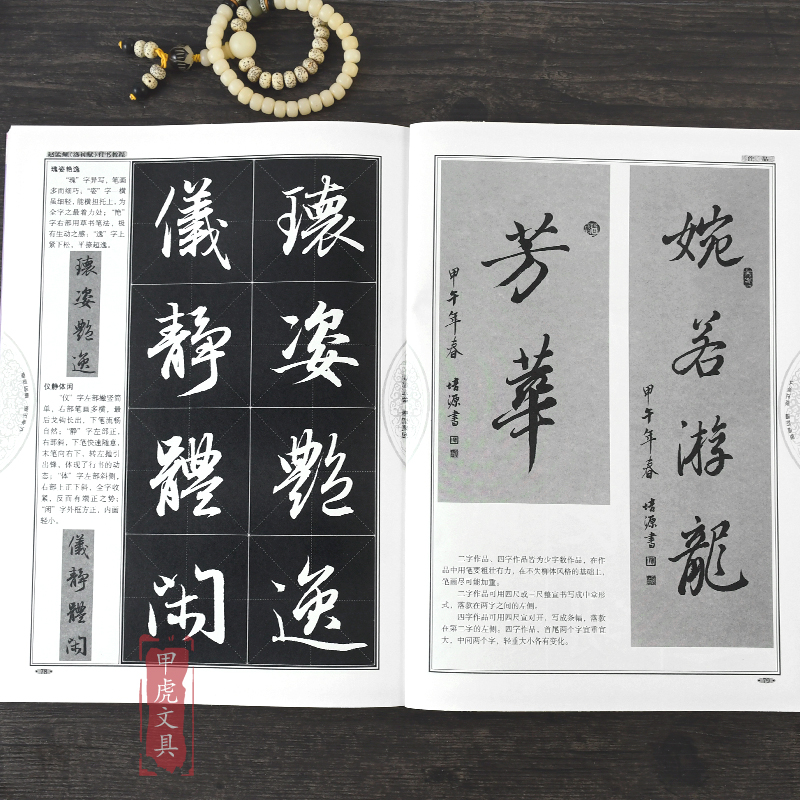 赵孟頫《洛神赋》行书教程
瑰姿艳逸
“瑰”字异写，笔画
多而细巧，“姿”字一横
虽细轻，能横担托上，为
全字之最着力处；“艳”
字右部用草书笔法，极
有生动之感；“逸”字上
紧下松，平捺超逸。
瓌
姿
艷
逸
仪静体闲
“仪”字左部撇竖简
单，右部笔画多横，最
后戈钩长出，下笔流畅
自然；“静”字左部正，
右部斜，下笔快速随意，
末笔向右下，转左撇引
出锋，体现了行书的动
态；“体”字左部斜侧，
右部上正下斜，全字收
紧，反而有端正之势；
“闲”字外框方正，内画
轻小。
儀
靜
體
閑
瓌姿艷逸
儀靜體閑
78
作品
婉若游龍
甲午年春
培源書
芳華
甲午年春
培源書
二字作品、四字作品皆为少字数作品，在作
品中用笔要粗壮有力，在不失柳体风格的基础上，
笔画尽可能加重。
二字作品可用四尺或三尺整宣书写成中堂形
式，落款在两字之间的左侧。
四字作品可用四尺宣对开，写成条幅，落款
在第二字的左侧。四字作品，首尾两个字宜重宜
大，中间两个字，轻重大小各有变化。
79
甲虎文具